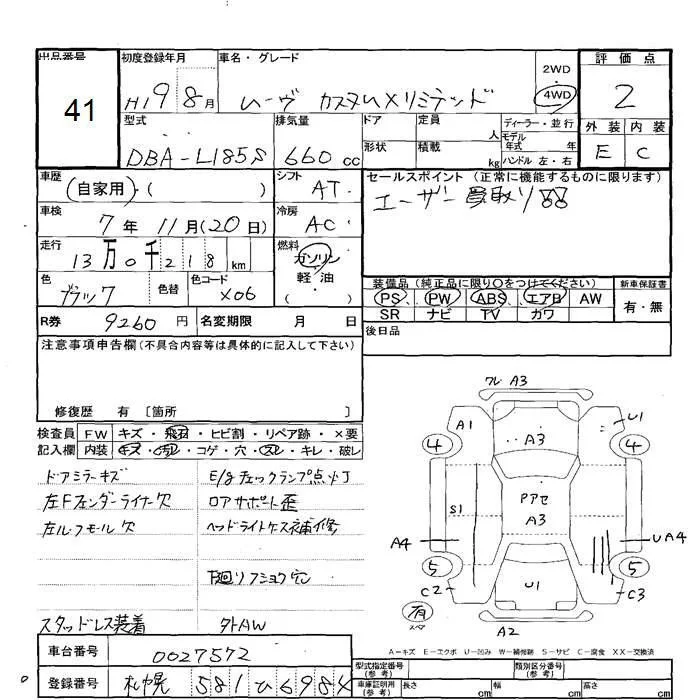 出品番号 41
初度登録年月 H19 8月
車名・グレード ムーヴ カスタムXリミテッド
2WD
4WD
評価点 2
外装 内装
E C
型式 DBA-L185S
排気量 660cc
ドア
定員 人
ディーラー・並行
モデル年式 年
形状
積載 kg
ハンドル 左・右
車歴 (自家用)・( )
シフト AT
セールスポイント (正常に機能するものに限ります)
ユーザー買取り
車検 7年 11月(20日)
冷房 AC
走行 13万0千218km
燃料 ガソリン
軽・油
( )
色 ブラック
色替
色コード X06
装備品(純正品に限り○をつけてください)
新車保証書
PS、PW、ABS、エアB AW
有・無
SR ナビ TV カワ
R券 9260円
名変期限 月 日
後日品
注意事項申告欄(不具合内容等は具体的に記入して下さい)
修復歴 有〔箇所 〕
検査員 FW キズ・飛石・ヒビ割・リペア跡・×要
記入欄 内装 キズ・汚レ・コゲ・穴・スレ・キレ・破レ
ドアミラーキズ
E/gチェックランプ点灯
左Fフェンダーライナー欠
ロアサポート歪
左ルーフモール欠
ヘッドライトケース補修
下廻りフショク穴
スタッドレス装着
外AW
ワレ A3
A1
A3
U1
4
4
S1
Pアセ
A3
A4
UA4
5
5
C2
U1
C3
有
スペア
A2
A-キズ E-エクボ U-凹み W-補修跡 S-サビ C-腐食 XX-交換済
車台番号 0027572
登録番号 札幌 581 ひ 6984
型式指定番号(参考)
類別区分番号(参考)
車庫証明用(参考) 長さ cm 幅 cm 高さ cm